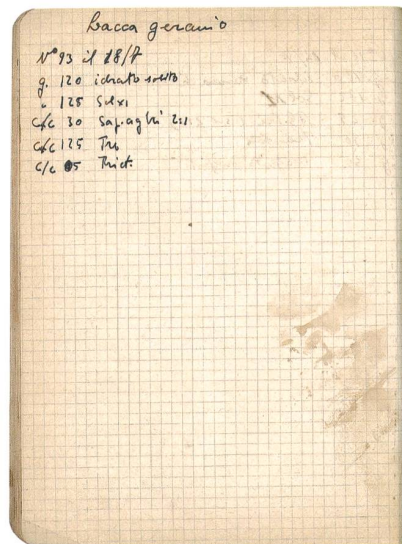 Lacca geranio
N° 93 il 28/7
g. 120 idrato solito
" 125 Solxi
c/c 30 Sap. aghi 2:1
c/c 125 Tre
c/c 5 Trict.